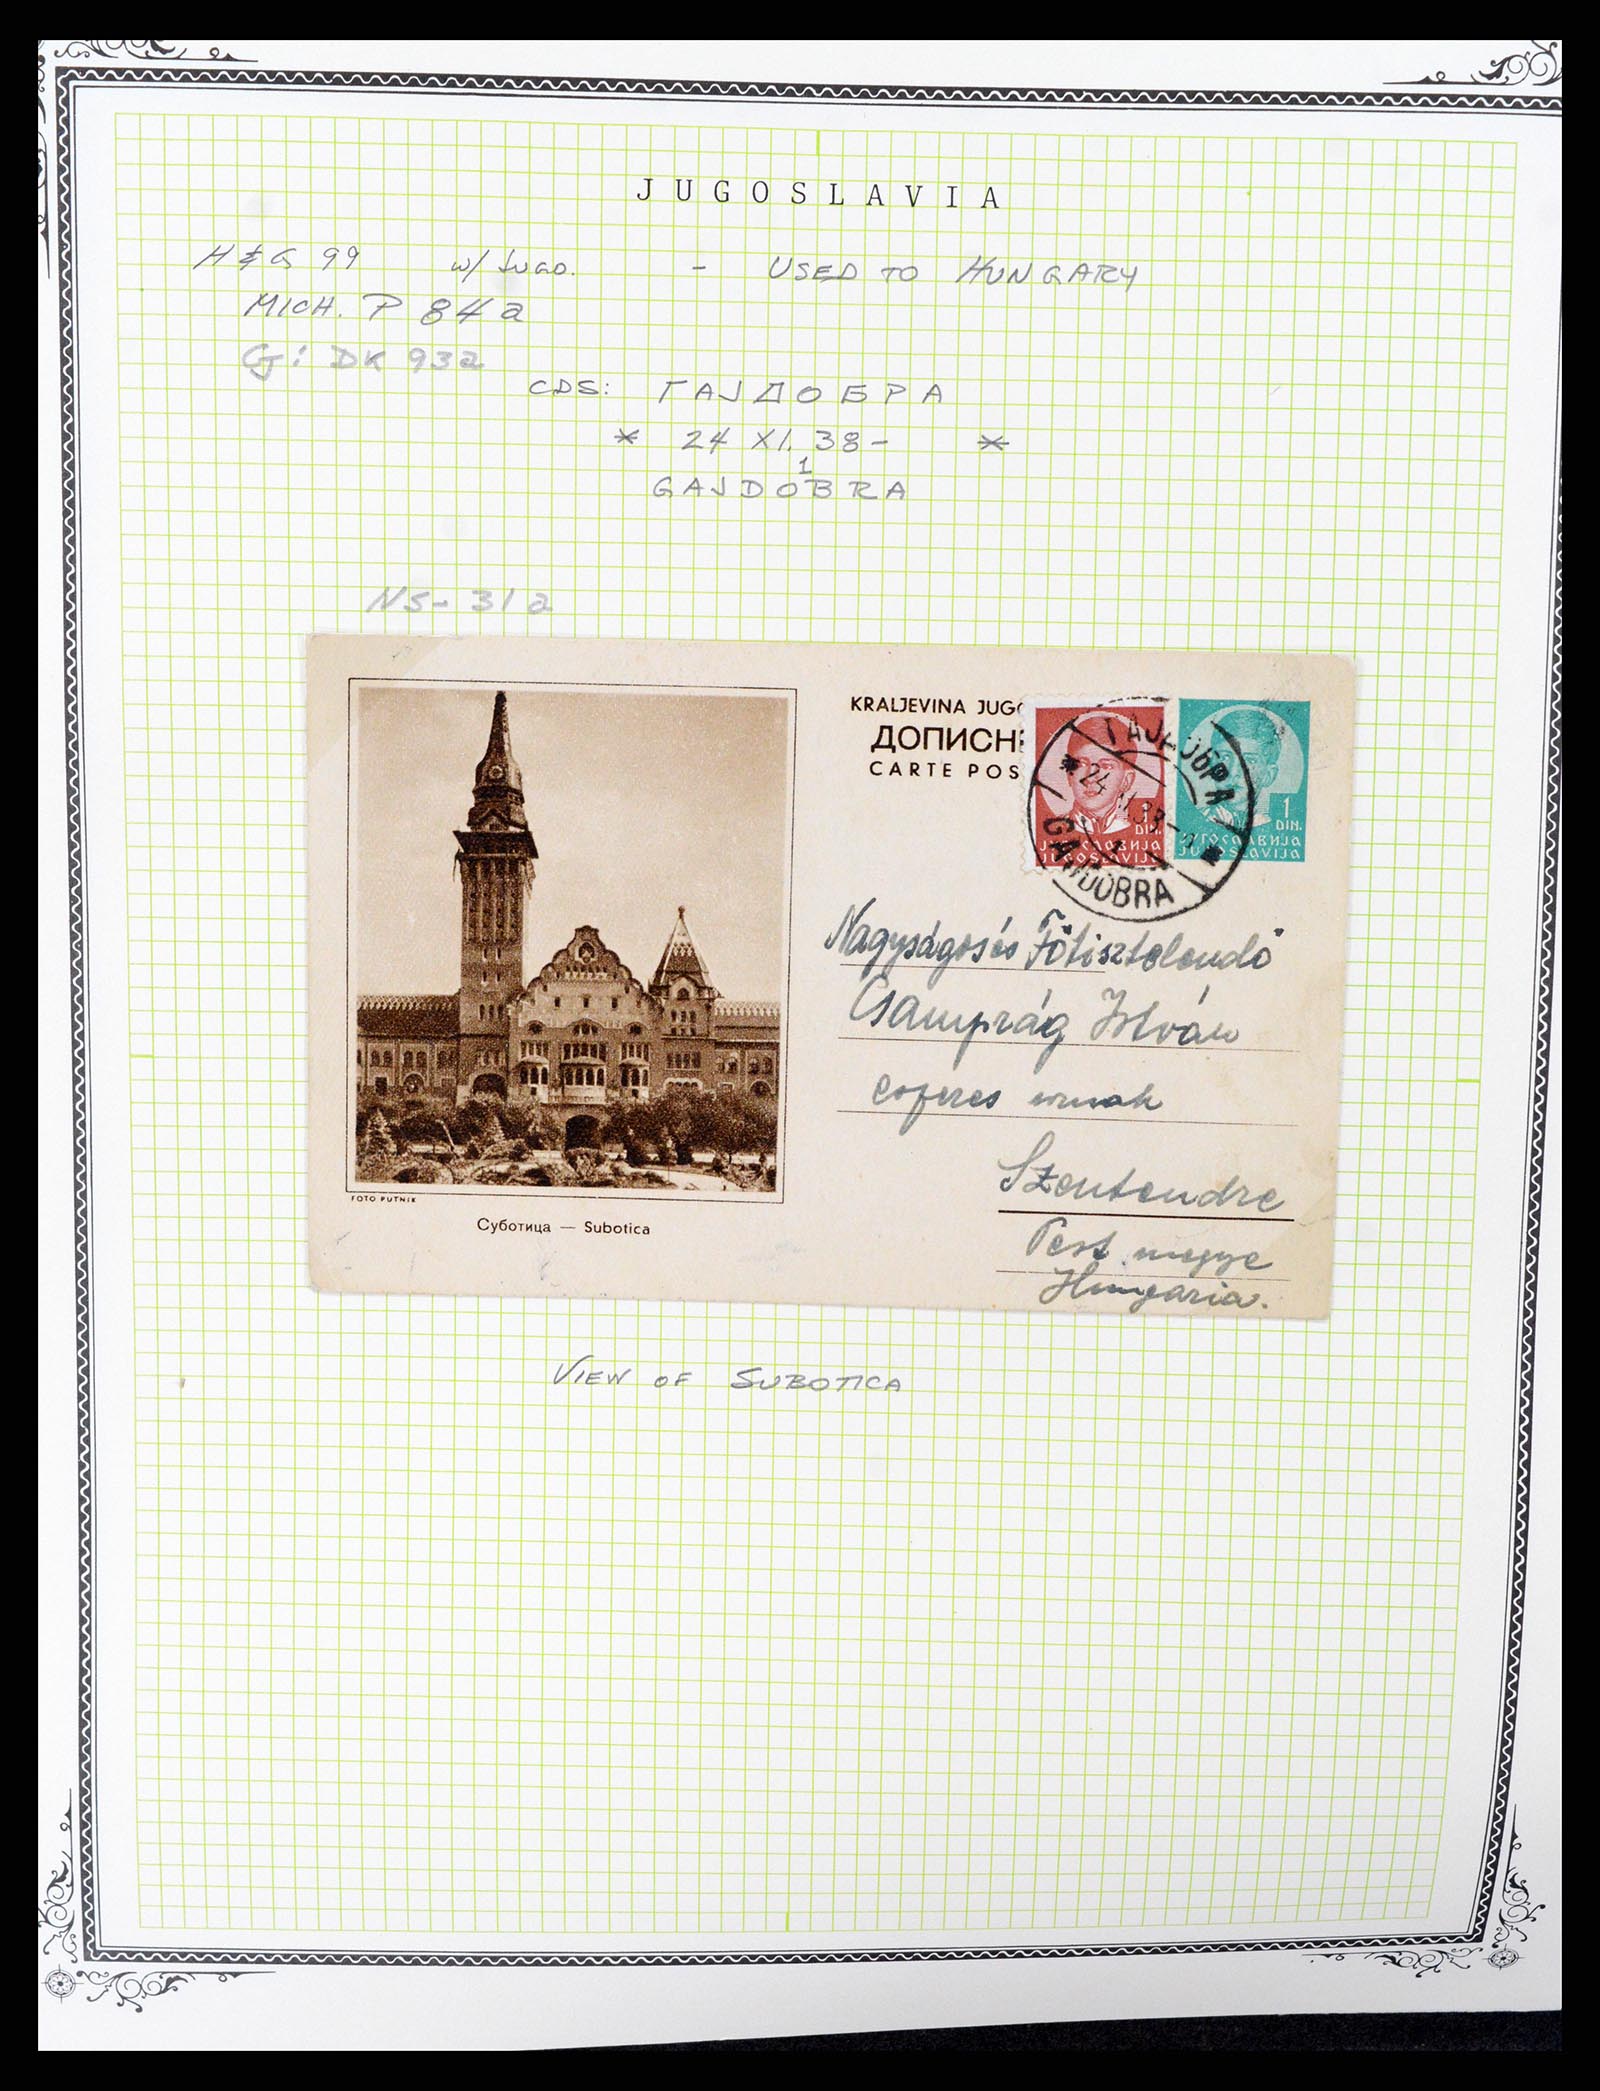 JUGOSLAVIA
H&G 99 w/ Jugo. - USED TO HUNGARY
MICH. P 84a
Cj: DK 93a
CDS: ГАЈДОБРА
* 24 XI. 38- *
1
GAJDOBRA
NS-31a
KRALJEVINA JUGO
ДОПИСН
CARTE POS
ГАЈДОБРА
GAJDOBRA
DIN.
ЈУГОСЛАВИЈА
JUGOSLAVIJA
1
DIN.
ЈУГОСЛАВИЈА
JUGOSLAVIJA
Nagyságos és Főtisztelendő
István
esperes urnak
Szentendre
Pest megye
Hungaria.
FOTO PUTNIK
Суботица — Subotica
VIEW OF SUBOTICA